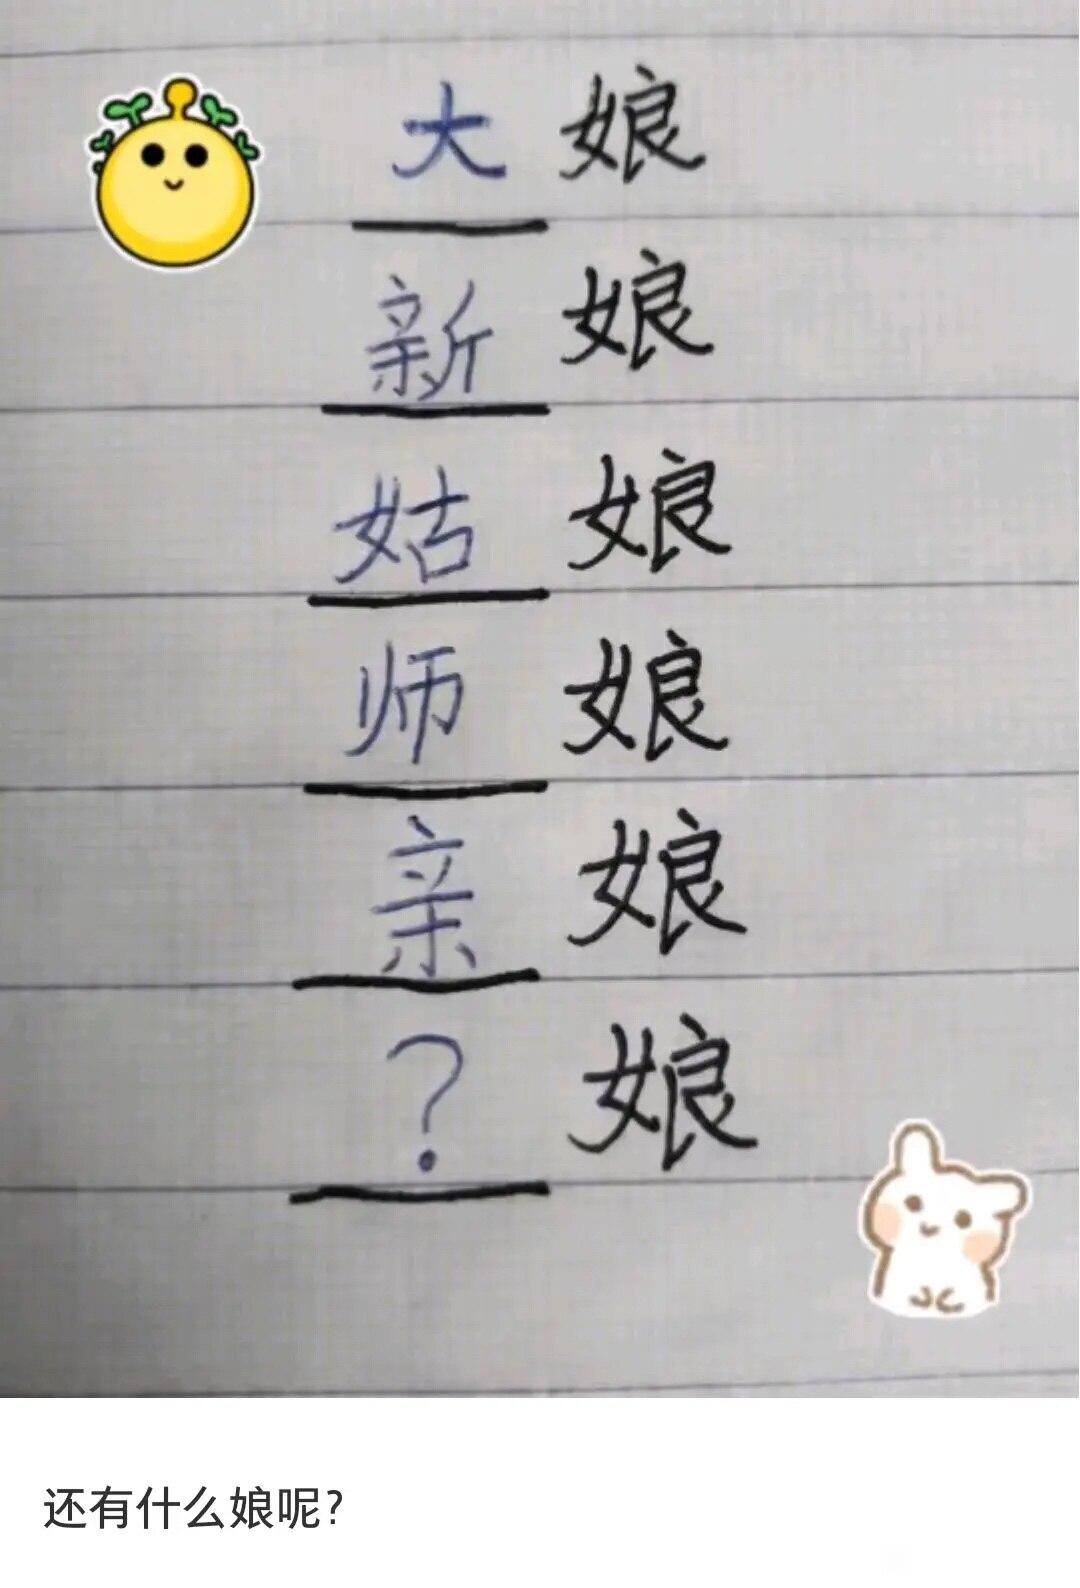 大 娘
新 娘
姑 娘
师 娘
亲 娘
? 娘
还有什么娘呢?